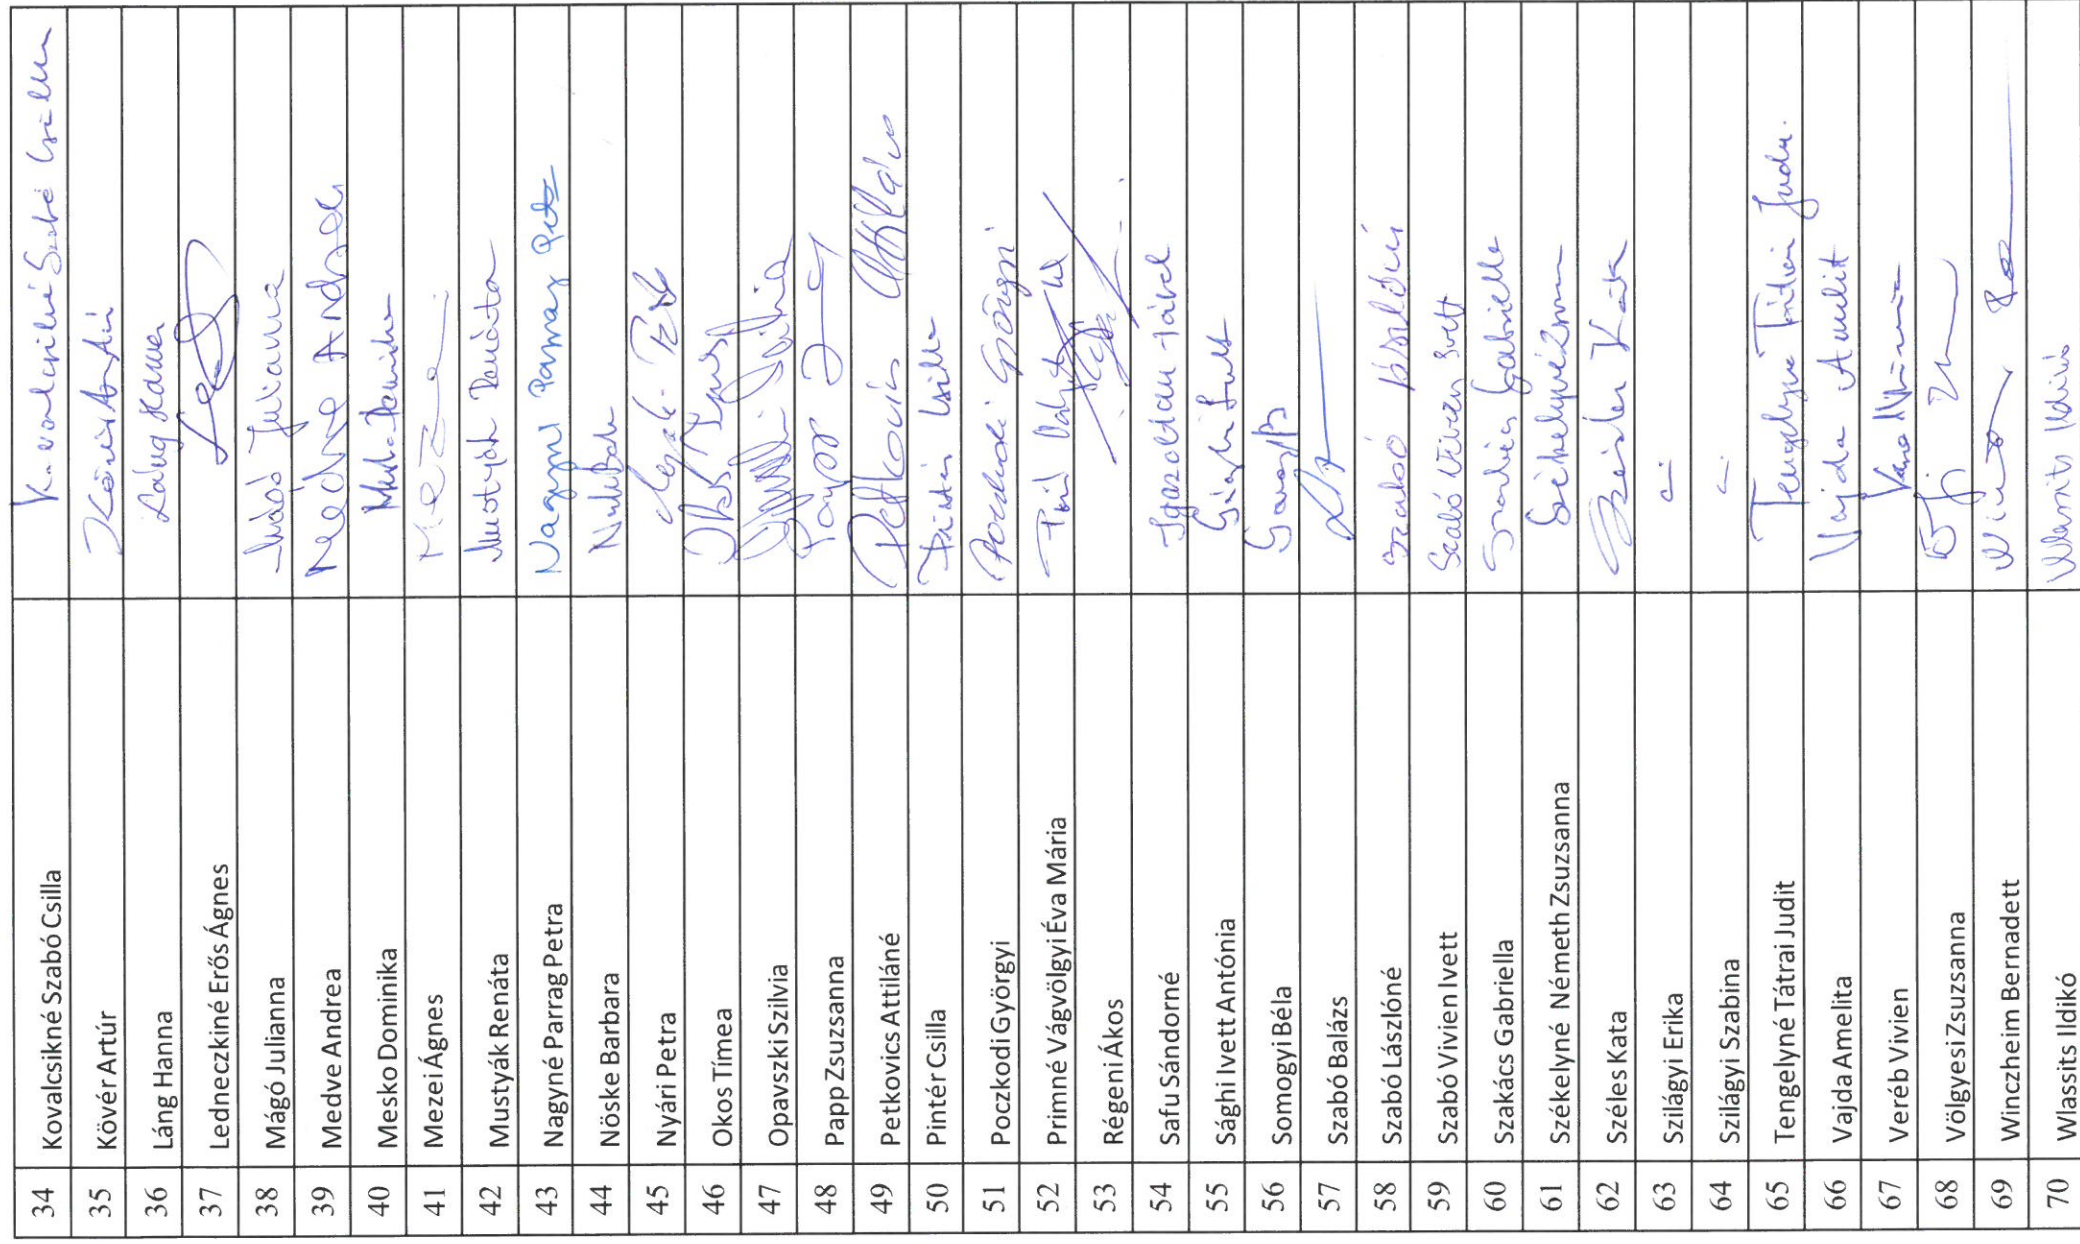 34 Kovalcsikné Szabó Csilla Kovalcsikné Szabó Csilla
35 Kövér Artúr Kövér Artúr
36 Láng Hanna Láng Hanna
37 Ledneczkiné Erős Ágnes
38 Mágó Julianna Mágó Julianna
39 Medve Andrea Medve Andrea
40 Mesko Dominika
41 Mezei Ágnes Mezei
42 Mustyák Renáta Mustyák Renáta
43 Nagyné Parrag Petra Nagyné Parrag Petra
44 Nöske Barbara
45 Nyári Petra
46 Okos Tímea
47 Opavszki Szilvia
48 Papp Zsuzsanna Papp
49 Petkovics Attiláné Petkovics Attiláné
50 Pintér Csilla Pintér Csilla
51 Poczkodi Györgyi Poczkodi Györgyi
52 Primné Vágvölgyi Éva Mária
53 Régeni Ákos
54 Safu Sándorné Igazoltan távol
55 Sághi Ivett Antónia
56 Somogyi Béla
57 Szabó Balázs
58 Szabó Lászlóné Szabó Lászlóné
59 Szabó Vivien Ivett Szabó Vivien Ivett
60 Szakács Gabriella Szakács Gabriella
61 Székelyné Németh Zsuzsanna
62 Széles Kata Széles Kata
63 Szilágyi Erika
64 Szilágyi Szabina
65 Tengelyné Tátrai Judit Tengelyné Tátrai Judit
66 Vajda Amelita Vajda Amelit
67 Veréb Vivien
68 Völgyesi Zsuzsanna
69 Winczheim Bernadett
70 Wlassits Ildikó Wlassits Ildikó